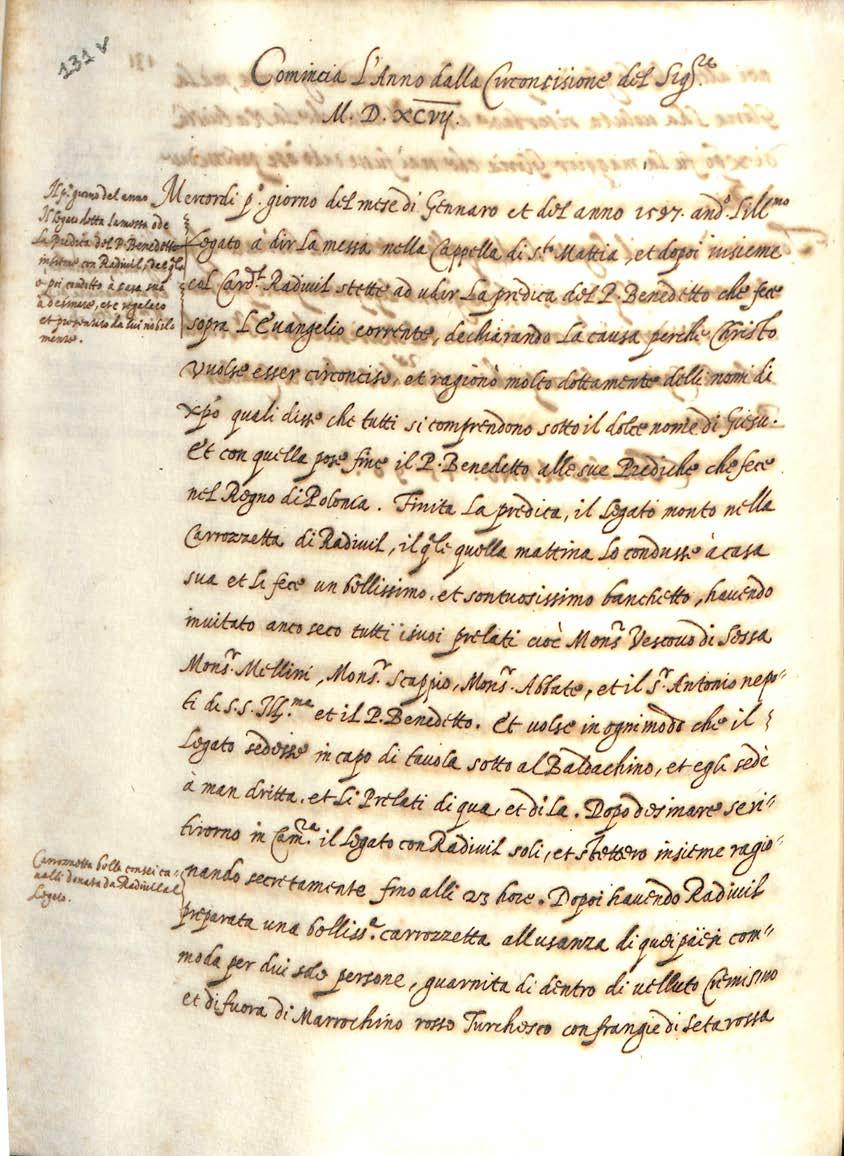 131 v
Comincia L'Anno dalla Circoncisione del Sig.re
M. D. XCVIJ.
Il p.o giorno del anno
Il legato detta la messa ode
la predica del P. Benedetto
insieme con Radivil, dal q.le
è poi condotto à casa sua
à desinare, et è regalato
et presentato da lui nobil
mente.
Mercordi p.o giorno del mese di Gennaro et del anno 1597. andò L'Ill.mo
Legato à dir La messa nella Cappella di S.to Mattia, et dopoi insieme
col Card.l Radivil stette ad udir La predica del P. Benedetto che fece
sopra L'Evangelio corrente, dechiarando La causa perche Christo
vuolse esser circonciso, et ragionò molto dottamente delli nomi di
xp̃o quali disse che tutti si comprendono sotto il dolce nome di Giesu.
Et con quella pose fine il P. Benedetto alle sue Prediche che fece
nel Regno di Polonia. Finita La predica, il Legato montò nella
Carrozzetta di Radivil, il q.le quella mattina Lo condusse à casa
sua et Li fece un bellissimo, et sontuosissimo banchetto, havendo
invitato anco seco tutti i suoi prelati cioè Mons.r Vescovo di Sessa
Mons.r Mellini, Mons.r Scappio, Mons.r Abbate, et il S.r Antonio nepo=
ti di S.S. Ill.ma et il P. Benedetto. Et volse in ogni modo che il
Legato sedesse in capo di tavola sotto al Baldachino, et egli sedè
à man dritta, et Li Prelati di qua, et di La. Dopo desinare se ri=
tirorno in Cam.ra il Legato con Radivil soli, et stettero insieme ragio=
nando secretamente fino alli 23 hore. Dopoi havendo Radivil
Carrozzetta bella con sei ca=
valli donata da Radivil al
Legato.
preparata una belliss.a carrozzetta all'usanza di quei paesi com=
moda per dui sole persone, guarnita di dentro di velluto Cremisino
et di fuora di Marrochino rosso Turchesco con frangie di seta rossa